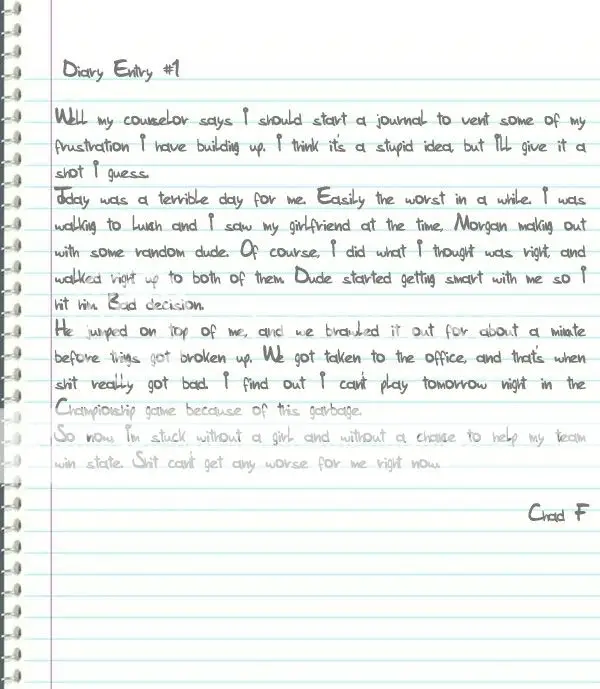 Diary Entry #1
Well my counselor says I should start a journal to vent some of my
frustration I have building up. I think it's a stupid idea, but I'll give it a
shot I guess.
Today was a terrible day for me. Easily the worst in a while. I was
walking to lunch and I saw my girlfriend at the time, Morgan making out
with some random dude. Of course, I did what I thought was right, and
walked right up to both of them. Dude started getting smart with me so I
hit him. Bad decision.
He jumped on top of me, and we brawled it out for about a minute
before things got broken up. We got taken to the office, and that's when
shit really got bad. I find out I can't play tomorrow night in the
Championship game because of this garbage.
So now I'm stuck without a girl and without a chance to help my team
win state. Shit can't get any worse for me right now.
Chad F